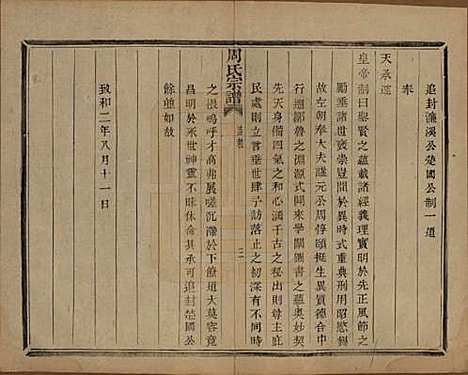 追封濂溪公楚國公制一道
奉
天承運
皇帝制曰聖賢之蘊載諸經義理實明於先正風節之
勵垂諸世襃崇豈間於異時式重典刑用昭慰
故左朝奉大夫謚元公周惇頤挺生異質德合中
行遡鄒魯之淵源式開來學闡圖書之蘊奧妙契
先天身備四氣之和心涵千古之秘出則尊主庇
民處則立言垂世肆予訪落止之初深有不同時
之恨嗚呼才高弗展嗟沉濂於下僚道大莫容竟
昌明於來世神靈不昧休命其承可追封楚國公
餘並如故
致和二年八月十一日
周氏宗譜
二